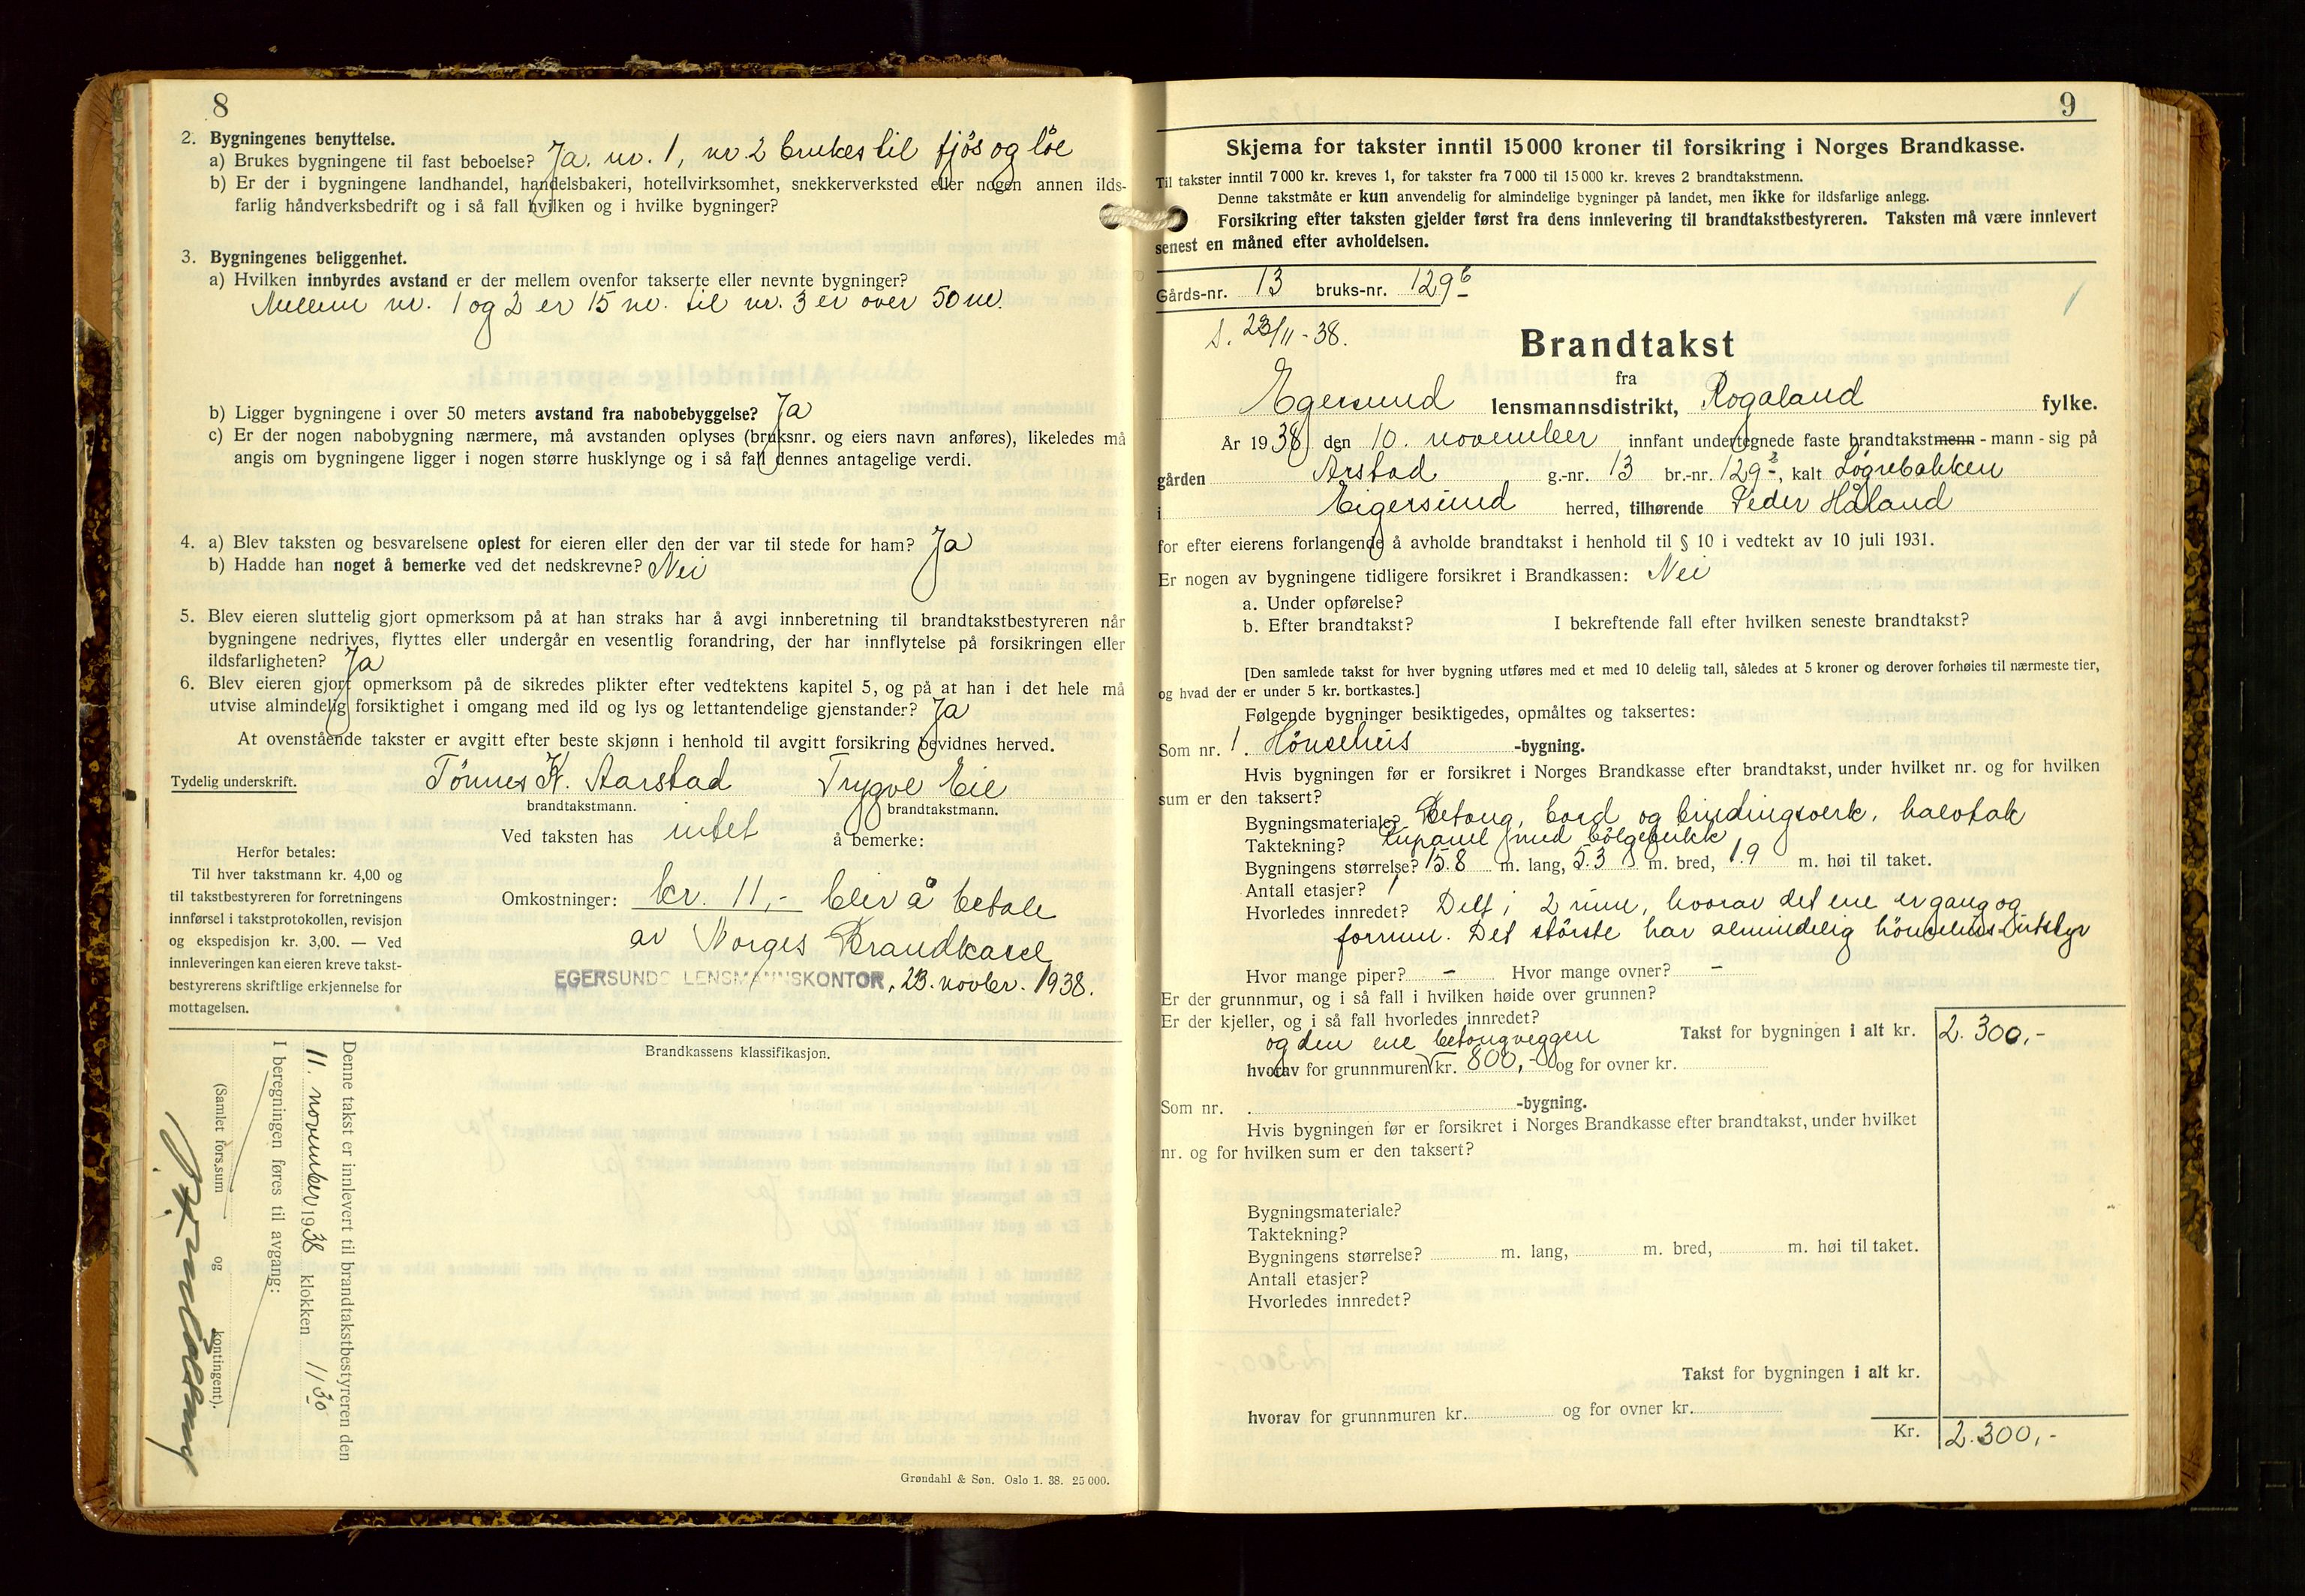 8
2. Bygningenes benyttelse.
a) Brukes bygningene til fast beboelse? Ja, nr. 1, nr. 2 brukes til fjös og löe
b) Er der i bygningene landhandel, handelsbakeri, hotellvirksomhet, snekkerverksted eller nogen annen ilds-
farlig håndverksbedrift og i så fall hvilken og i hvilke bygninger?
3. Bygningenes beliggenhet.
a) Hvilken innbyrdes avstand er der mellem ovenfor takserte eller nevnte bygninger?
Mellem nr. 1 og 2 er 15 m. til nr. 3 er over 50 m.
b) Ligger bygningene i over 50 meters avstand fra nabobebyggelse? Ja
c) Er der nogen nabobygning nærmere, må avstanden oplyses (bruksnr. og eiers navn anføres), likeledes må
angis om bygningene ligger i nogen større husklynge og i så fall dennes antagelige verdi.
4. a) Blev taksten og besvarelsene oplest for eieren eller den der var til stede for ham? Ja
b) Hadde han noget å bemerke ved det nedskrevne? Nei
5. Blev eieren sluttelig gjort opmerksom på at han straks har å avgi innberetning til brandtakstbestyreren når
bygningene nedrives, flyttes eller undergår en vesentlig forandring, der har innflytelse på forsikringen eller
ildsfarligheten? Ja
6. Blev eieren gjort opmerksom på de sikredes plikter efter vedtektens kapitel 5, og på at han i det hele må
utvise almindelig forsiktighet i omgang med ild og lys og lettantendelige gjenstander? Ja
At ovenstående takster er avgitt efter beste skjønn i henhold til avgitt forsikring bevidnes herved.
Tydelig underskrift. Tönnes K. Aarstad Trygve Eie
brandtakstmann. brandtakstmann.
Ved taksten has intet å bemerke:
Herfor betales:
Til hver takstmann kr. 4,00 og
til takstbestyreren for forretningens
innførsel i takstprotokollen, revisjon
og ekspedisjon kr. 3,00. — Ved
innleveringen kan eieren kreve takst-
bestyrerens skriftlige erkjennelse for
mottagelsen.
Omkostninger: kr. 11,- blir å betale
av Norges Brandkasse
EGERSUNDS LENSMANNSKONTOR, 23. novbr. 1938.
Brandkassens klassifikasjon.
Denne takst er innlevert til brandtakstbestyreren den
11. november 1938 klokken 11 30
I beregningen føres til avgang:
(Samlet fors.sum og kontingent).
Grøndahl & Søn. Oslo 1. 38. 25 000.
9
Skjema for takster inntil 15 000 kroner til forsikring i Norges Brandkasse.
Til takster inntil 7 000 kr. kreves 1, for takster fra 7 000 til 15 000 kr. kreves 2 brandtakstmenn.
Denne takstmåte er kun anvendelig for almindelige bygninger på landet, men ikke for ildsfarlige anlegg.
Forsikring efter taksten gjelder først fra dens innlevering til brandtakstbestyreren. Taksten må være innlevert
senest en måned efter avholdelsen.
Gårds-nr. 13 bruks-nr. 129 b
1
D. 23/11-38.
Brandtakst
fra
Egersund lensmannsdistrikt, Rogaland fylke.
År 1938 den 10. november innfant undertegnede faste brandtakstmenn - mann - sig på
gården Årstad g.-nr. 13 br.-nr. 129 b, kalt Lögrebakken
i Eigersund herred, tilhørende Peder Håland
for efter eierens forlangende å avholde brandtakst i henhold til § 10 i vedtekt av 10 juli 1931.
Er nogen av bygningene tidligere forsikret i Brandkassen: Nei
a. Under opførelse?
b. Efter brandtakst? I bekreftende fall efter hvilken seneste brandtakst?
[Den samlede takst for hver bygning utføres med et med 10 delelig tall, således at 5 kroner og derover forhøies til nærmeste tier,
og hvad der er under 5 kr. bortkastes.]
Følgende bygninger besiktigedes, opmåltes og taksertes:
Som nr. 1. Hönsehus -bygning.
Hvis bygningen før er forsikret i Norges Brandkasse efter brandtakst, under hvilket nr. og for hvilken
sum er den taksert?
Bygningsmateriale? Betong, bord og bindingsverk, halvtak
Taktekning? Rupanel med bölgeblikk
Bygningens størrelse? 15.8 m. lang, 5.3 m. bred, 1.9 m. høi til taket.
Antall etasjer? 1
Hvorledes innredet? Delt i 2 rum, hvorav det ene er gang og
forrum. Det störste har almindelig hönsehus-utstyr
Hvor mange piper? - Hvor mange ovner? -
Er der grunnmur, og i så fall i hvilken høide over grunnen?
Er der kjeller, og i så fall hvorledes innredet?
Takst for bygningen i alt kr. 2.300,-
og den ene betongveggen
hvorav for grunnmuren kr. 800,- og for ovner kr.
Som nr. -bygning.
Hvis bygningen før er forsikret i Norges Brandkasse efter brandtakst, under hvilket
nr. og for hvilken sum er den taksert?
Bygningsmateriale?
Taktekning?
Bygningens størrelse? m. lang, m. bred, m. høi til taket.
Antall etasjer?
Hvorledes innredet?
Takst for bygningen i alt kr.
hvorav for grunnmuren kr. og for ovner kr.
Kr. 2.300,-